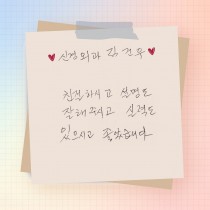 ♥ 신경외과 김건우 ♥
친절하시고 설명도
잘해주시고 실력도
있으시고 좋았습니다